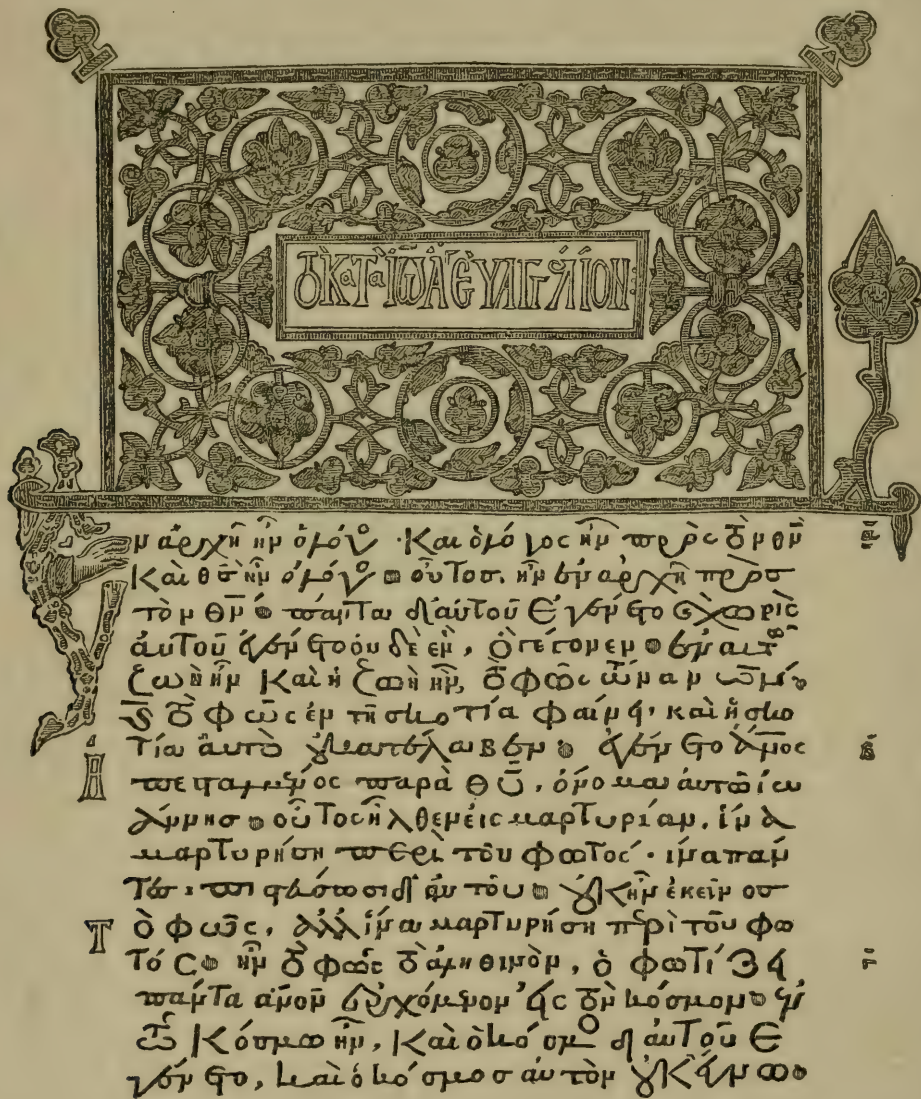 τὸ κατὰ ἰω̅ά εὐαγγέλιον:
ν ἀρχῆ ἦν ὁ λόγος · Και ὁ λόγος ἦν πρὸς τὸν θν̅
Καὶ θσ̅ ἦν ὁ λόγος οὗτος. ἦν ἐν ἀρχῆ πρὸσ
τὸν θν̅ πάντα δι αὐτοῦ ἐγένετο ϗ χωρὶς
ἀυτοῦ ἐγένετο ὀυδὲ ἐν, ὃ γέγονεν ἐν αυτῶ
ζωὴ ἦν Καὶ ἡ ζωὴ ἦν, τὸ φῶς τῶν ἀνων̅
ϗ τὸ φῶς ἐν τῆ σκοτία φαίνει, καὶ ἡ σκο
τία ἀυτὸ ου κατέλαβεν ἐγένετο ἄνος
ἀπεσταλμένος παρὰ θυ̅, ὄνομα ἀυτῶ ἰω
άννησ οὗτος ἦλθεν ἐις μαρτυρίαν, ἵνα
μαρτυρήση περὶ τοῦ φωτός · ἵνα παν
τεσ πιστεύσωσι δι αυτοῦ ουκ ἦν ἐκεῖνοσ
τὸ φῶς, ἀλλ ἵνα μαρτυρήση περὶ τοῦ φω
τός ἦν τὸ φῶς τὸ ἀληθινὸν, ὃ φωτίζει
πάντα ἀνον̅ ἐρχόμενον εἰς τὸν κόσμον ἐν
τῶ Κόσμω ἦν, Καὶ ὁ κόσμος δι αυτοῦ Ε
γένετο, καὶ ὁ κόσμοσ αυτὸν ουκ ἔγνω